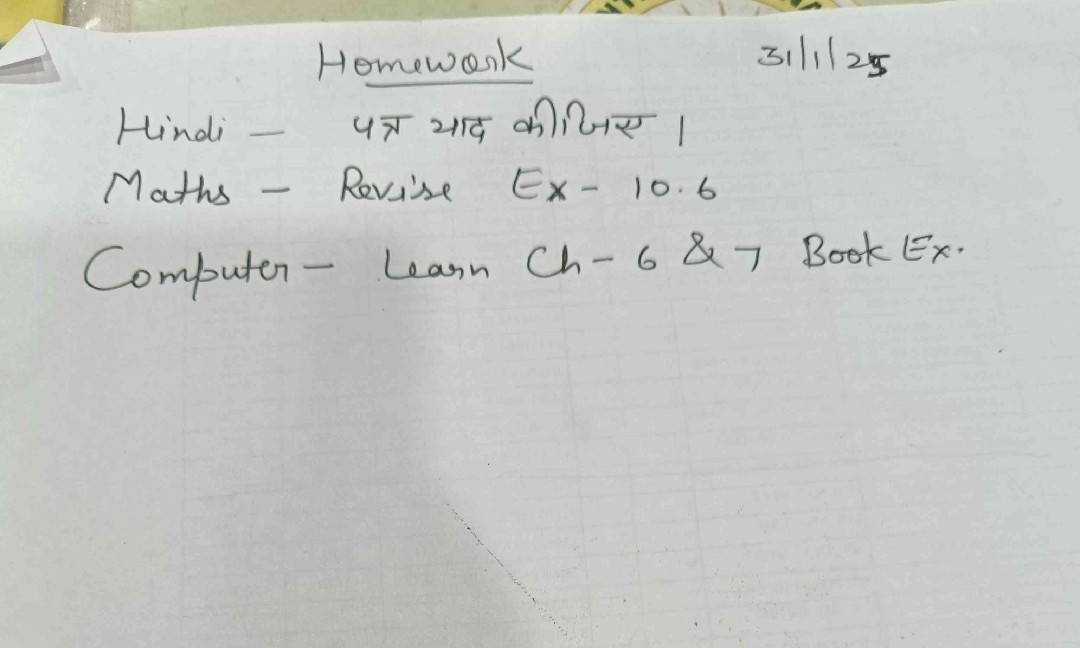 Homework 31/1/25
Hindi – पत्र याद कीजिए ।
Maths – Revise Ex - 10.6
Computer – Learn Ch - 6 & 7 Book Ex.